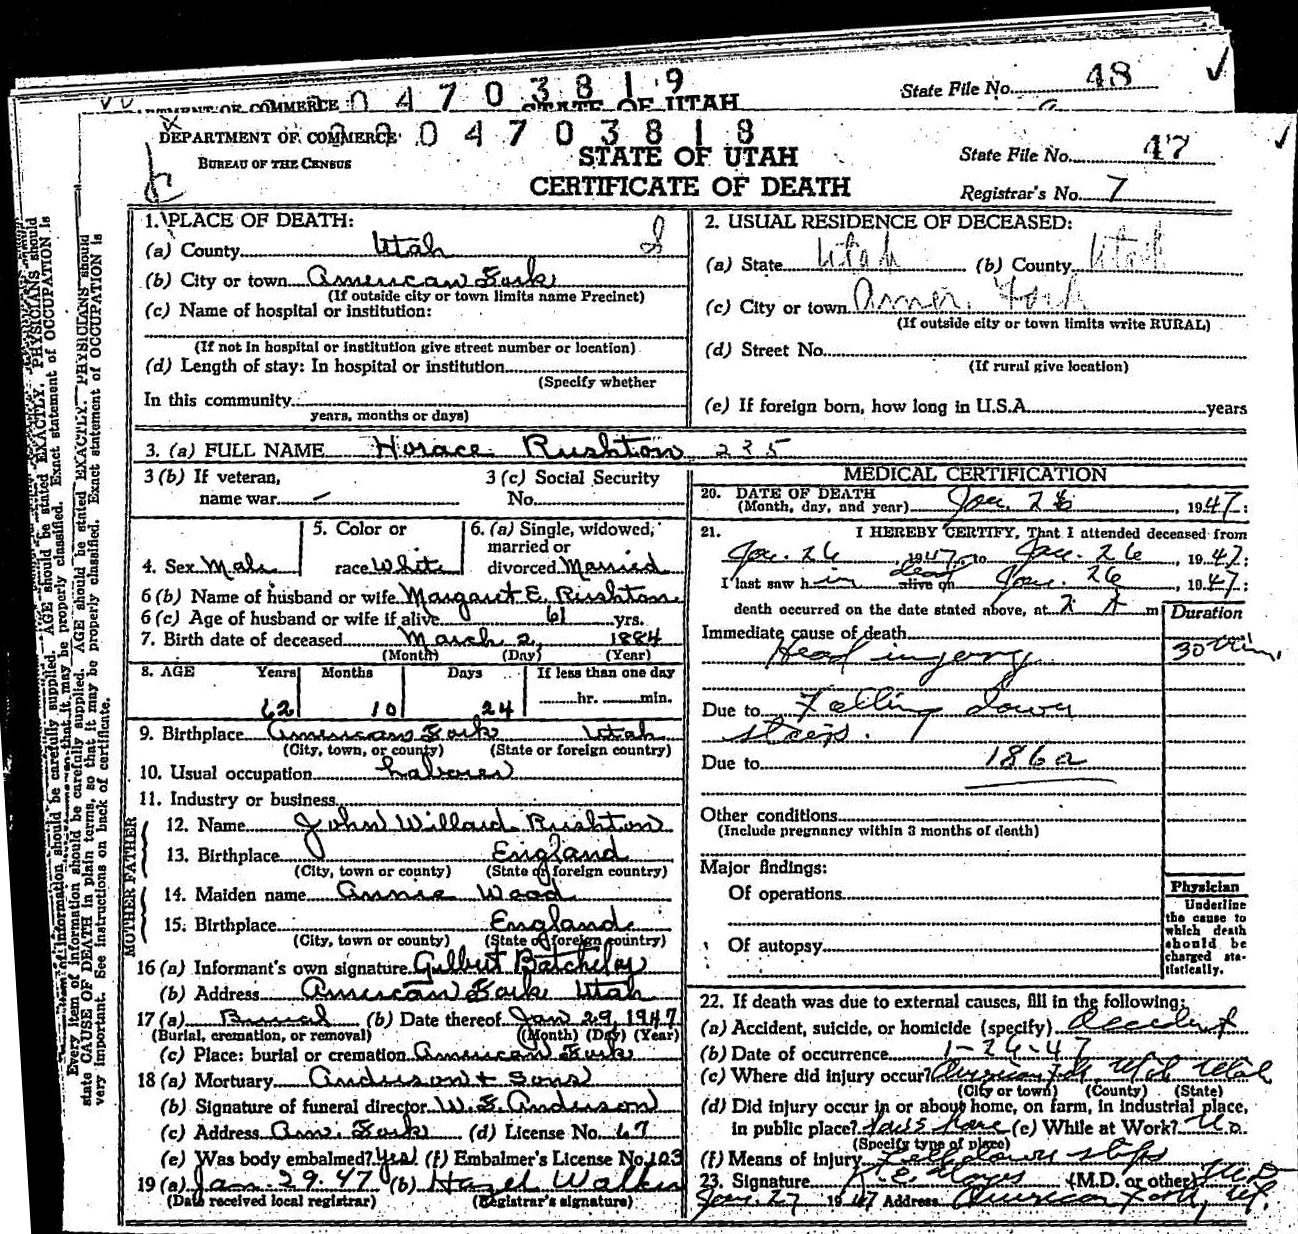 0 4 7 0 3 8 1 9
State File No. 48
DEPARTMENT OF COMMERCE
STATE OF UTAH
0 0 4 7 0 3 8 1 8
DEPARTMENT OF COMMERCE
BUREAU OF THE CENSUS
STATE OF UTAH
CERTIFICATE OF DEATH
State File No. 47
Registrar's No. 7
1. PLACE OF DEATH:
(a) County Utah
(b) City or town American Fork
(If outside city or town limits name Precinct)
(c) Name of hospital or institution:
(If not in hospital or institution give street number or location)
(d) Length of stay: In hospital or institution
(Specify whether
In this community
years, months or days)
2. USUAL RESIDENCE OF DECEASED:
(a) State Utah (b) County Utah
(c) City or town Amer. Fork
(If outside city or town limits write RURAL)
(d) Street No.
(If rural give location)
(e) If foreign born, how long in U.S.A. years
3. (a) FULL NAME Horace Rushton 235
3 (b) If veteran,
name war –
3 (c) Social Security
No.
4. Sex Male
5. Color or
race White
6. (a) Single, widowed,
married or
divorced Married
6 (b) Name of husband or wife Margaret E. Rushton
6 (c) Age of husband or wife if alive 61 yrs.
7. Birth date of deceased March 2, 1884
(Month) (Day) (Year)
8. AGE Years Months Days If less than one day
62 10 24 hr. min.
9. Birthplace American Fork Utah
(City, town, or county) (State or foreign country)
10. Usual occupation Laborer
11. Industry or business
FATHER
12. Name John Willard Rushton
13. Birthplace England
(City, town or county) (State or foreign country)
MOTHER
14. Maiden name Annie Wood
15. Birthplace England
(City, town or county) (State or foreign country)
16 (a) Informant's own signature Gilbert Batchelor
(b) Address American Fork Utah
17 (a) Burial (b) Date thereof Jan 29, 1947
(Burial, cremation, or removal) (Month) (Day) (Year)
(c) Place: burial or cremation American Fork
18 (a) Mortuary Anderson + Sons
(b) Signature of funeral director W. E. Anderson
(c) Address Am. Fork (d) License No. 67
(e) Was body embalmed? Yes (f) Embalmer's License No. 103
19 (a) Jan. 29. 47 (b) Hazel Walker
(Date received local registrar) (Registrar's signature)
MEDICAL CERTIFICATION
20. DATE OF DEATH
(Month, day, and year) Jan. 26, 1947:
21. I HEREBY CERTIFY, That I attended deceased from
Jan. 26 1947, to Jan. 26, 1947:
I last saw him dead alive on Jan. 26, 1947:
death occurred on the date stated above, at 2 A m
Duration
Immediate cause of death
Head injery 30 Min.
Due to Falling down
steps.
Due to 186a
Other conditions
(Include pregnancy within 3 months of death)
Major findings:
Of operations
Of autopsy
Physician
Underline
the cause to
which death
should be
charged sta-
tistically.
22. If death was due to external causes, fill in the following:
(a) Accident, suicide, or homicide (specify) Accident
(b) Date of occurrence 1-26-47
(c) Where did injury occur? American Fork, Utah Utah
(City or town) (County) (State)
(d) Did injury occur in or about home, on farm, in industrial place,
in public place? (e) While at Work? No.
(Specify type of place)
(f) Means of injury Fell down steps
23. Signature (M.D. or other) M.D.
Jan. 27 1947 Address American Fork, Ut.
Every item of information should be carefully supplied. AGE should be stated EXACTLY. PHYSICIANS should
state CAUSE OF DEATH in plain terms, so that it may be properly classified. Exact statement of OCCUPATION is
very important. See instructions on back of certificate.